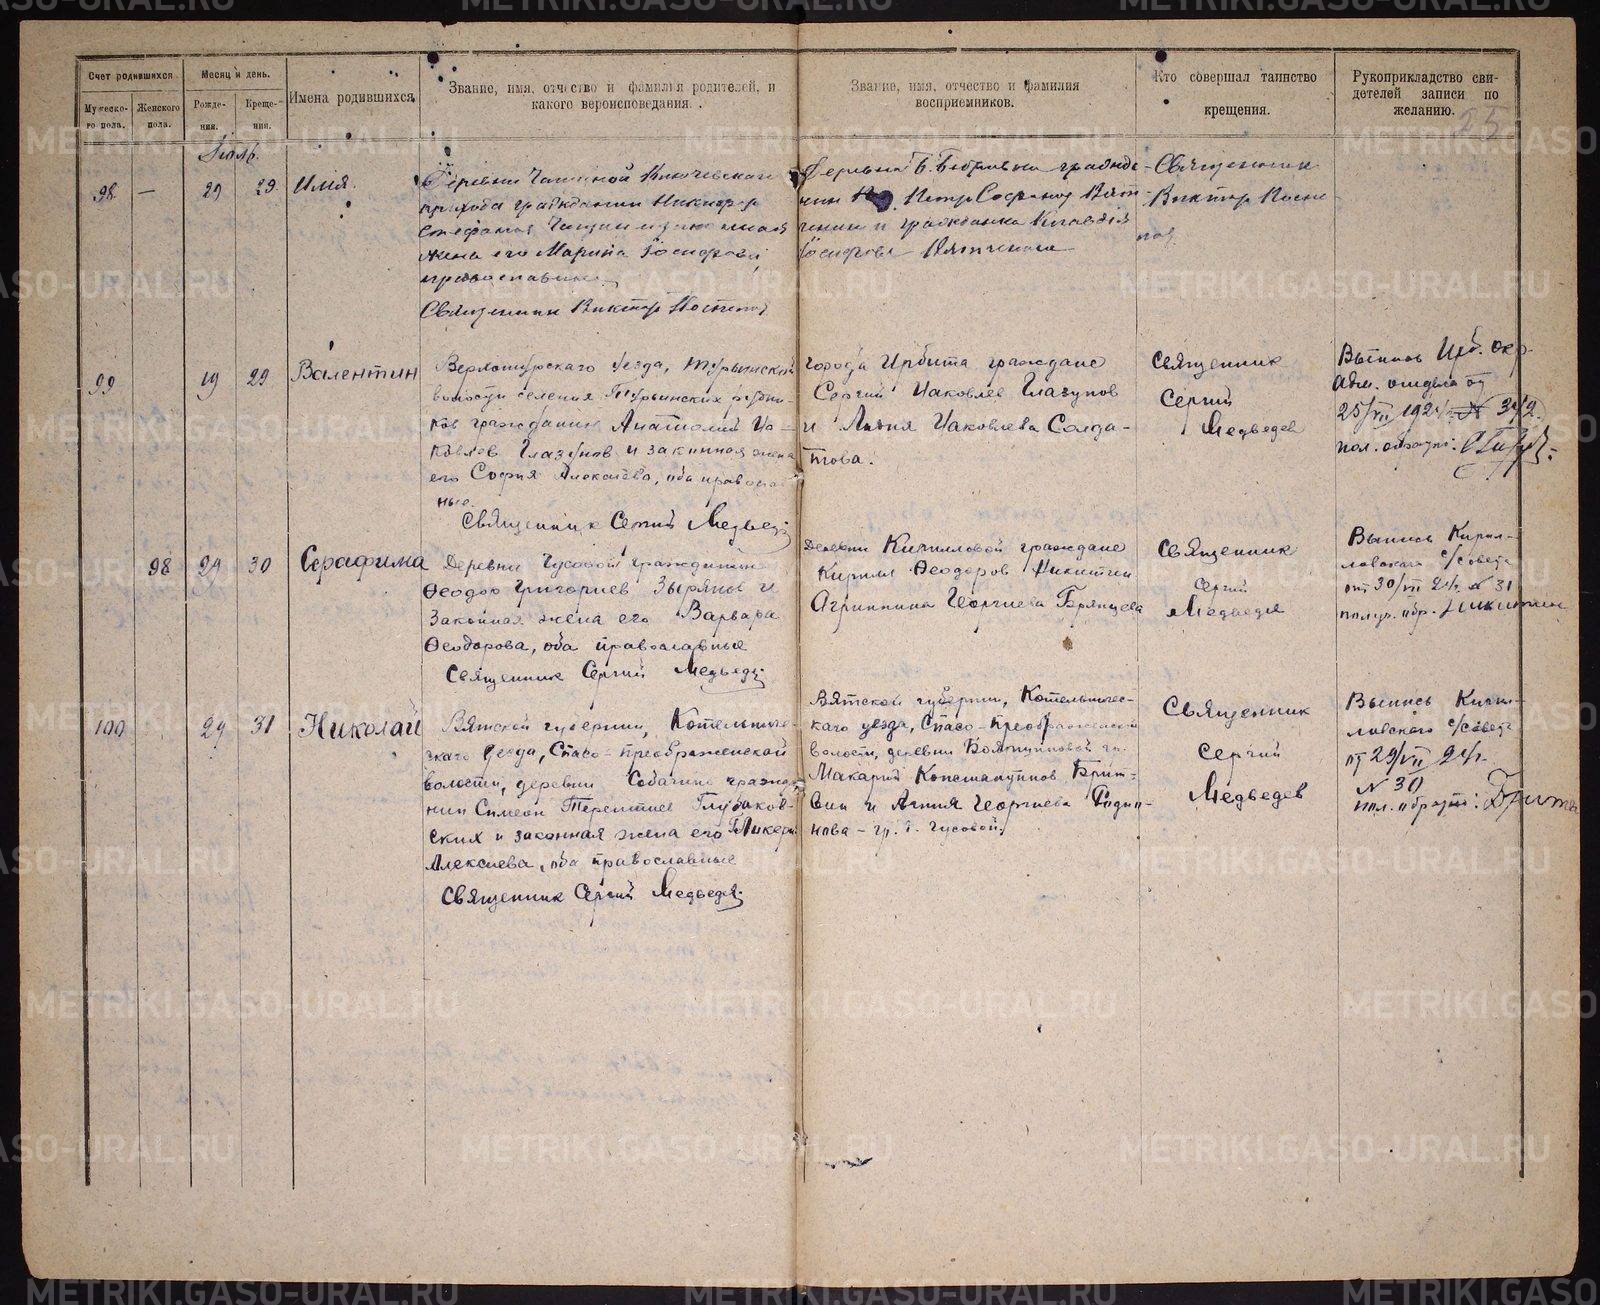 Счет родившихся
Мужеско-
го пола.
Женского
пола.
Месяц и день.
Рожде-
ния.
Креще-
ния.
Имена родившихся.
Звание, имя, отчество и фамилия родителей, и
какого вероисповедания.
Звание, имя, отчество и фамилия
восприемников.
Кто совершал таинство
крещения.
Рукоприкладство сви-
детелей записи по
желанию.
25
Июль.
98 — 29 29 Илия.
Деревни Ключевскаго
прихода гражданин Никифор
Стефанов
жена его Мария Иосифова,
православные
Священник Виктор
Деревни гражда-
нин Петр Вят-
чинин и гражданка Клавдия
Иосифова Вятчинина
Священник
Виктор
99 19 29 Валентин
Верхотурскаго уезда, Турьинской
волости селения Турьинских рудни-
ков гражданин Анатолий Иа-
ковлев Глазунов и законная жена
его София Алексиева, оба православ-
ные
Священник Сергий Медведев
города Ирбита граждане
Сергий Иаковлев Глазунов
и Лидия Иаковлева Солда-
това.
Священник
Сергий
Медведев
Выпись Ирб. окр.
адм. отдела от
25/VII 1924 г. № 342
пол. обратно:
98 29 30 Серафима
Деревни Чусовой гражданин
Феодор Григориев Зырянов и
Законная жена его Варвара
Феодорова, оба православные
Священник Сергий Медведев
Деревни Кирилловой граждане
Кирилл Феодоров Никитин
Агриппина Георгиева Брянцева
Священник
Сергий
Медведев
Выпись Кирил-
ловскаго с/совета
от 30/VII 24 г. № 31
получ. обр. Никитин
100 29 31 Николай
Вятской губернии, Котельниче-
скаго уезда, Спасо-Преображенской
волости, деревни Собачино гражда-
нин Симеон Терентиев Глушков-
ских и законная жена его Гликерия
Алексиева, оба православные
Священник Сергий Медведев
Вятской губернии, Котельничес-
каго уезда, Спасо-Преображенской
волости, деревни гр.
Макарий Константинов
и Агния Георгиева Родио-
нова – гр. д. Чусовой.
Священник
Сергий
Медведев
Выпись Кирил-
ловского с/совета
от 29/VII 24 г.
№ 30
пол. обратно:
METRIKI.GASO-URAL.RU